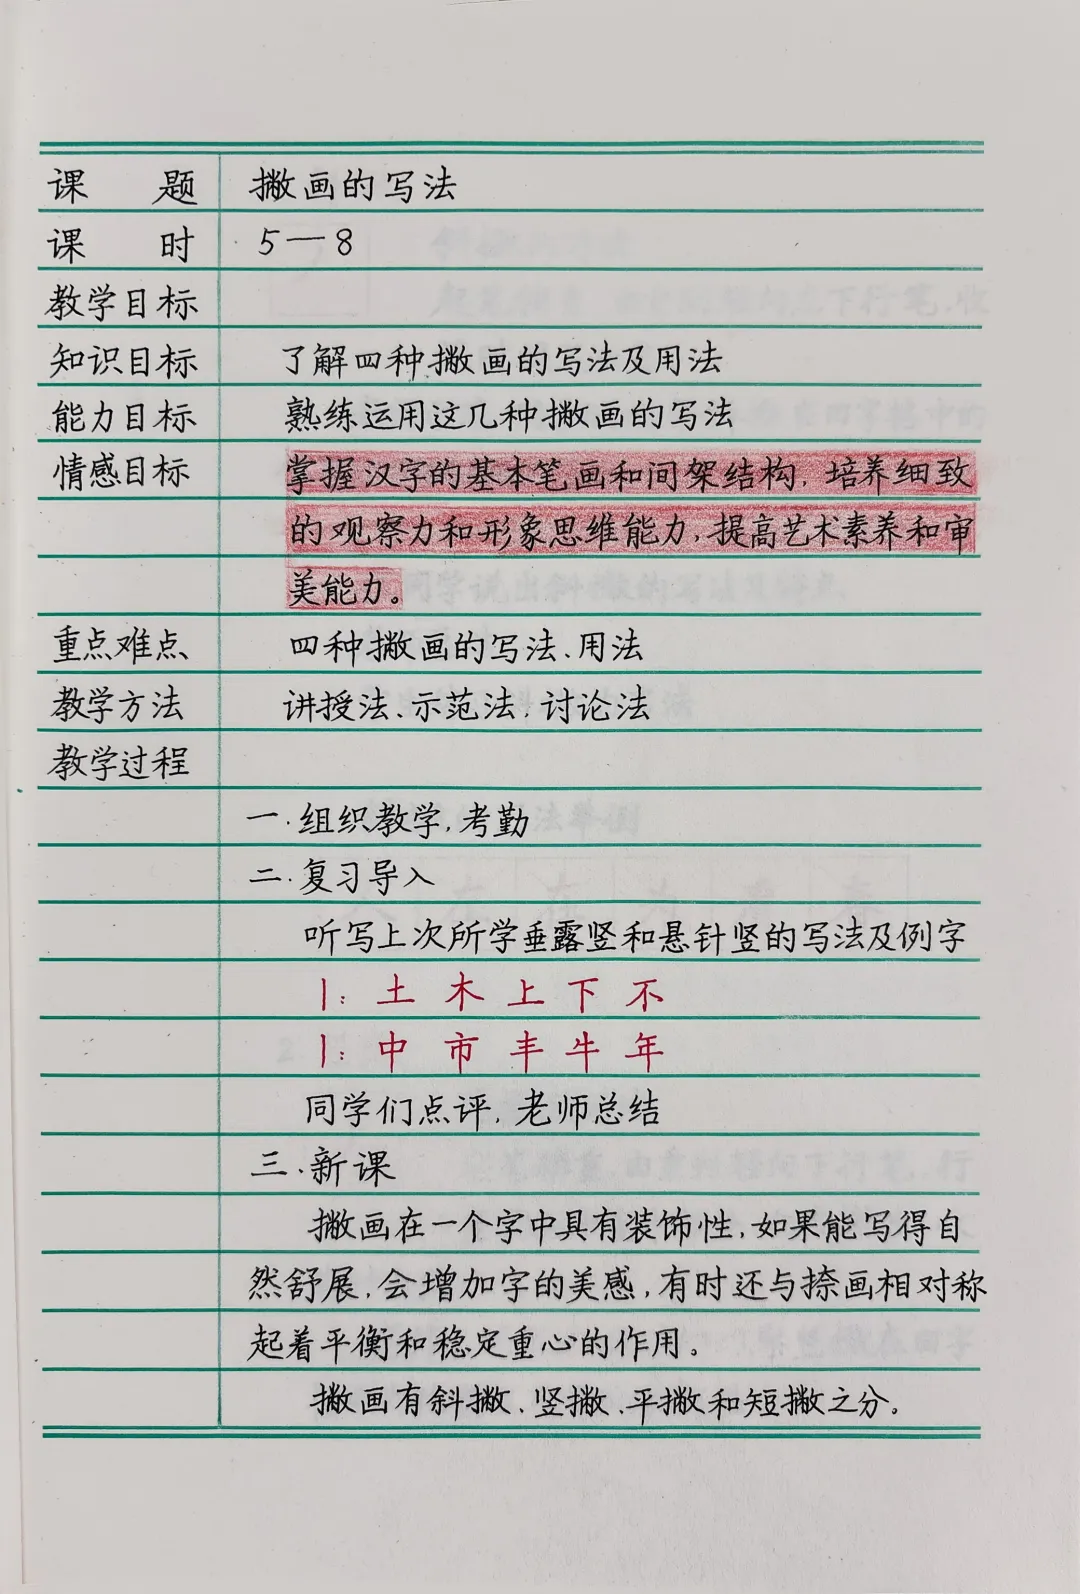 课 题 撇画的写法
课 时 5—8
教学目标
知识目标 了解四种撇画的写法及用法
能力目标 熟练运用这几种撇画的写法
情感目标 掌握汉字的基本笔画和间架结构,培养细致
的观察力和形象思维能力,提高艺术素养和审
美能力。
重点难点 四种撇画的写法、用法
教学方法 讲授法、示范法,讨论法
教学过程
一.组织教学,考勤
二.复习导入
听写上次所学垂露竖和悬针竖的写法及例字
丨: 土 木 上 下 不
丨: 中 市 丰 牛 年
同学们点评,老师总结
三.新课
撇画在一个字中具有装饰性,如果能写得自
然舒展,会增加字的美感,有时还与捺画相对称
起着平衡和稳定重心的作用。
撇画有斜撇、竖撇、平撇和短撇之分。